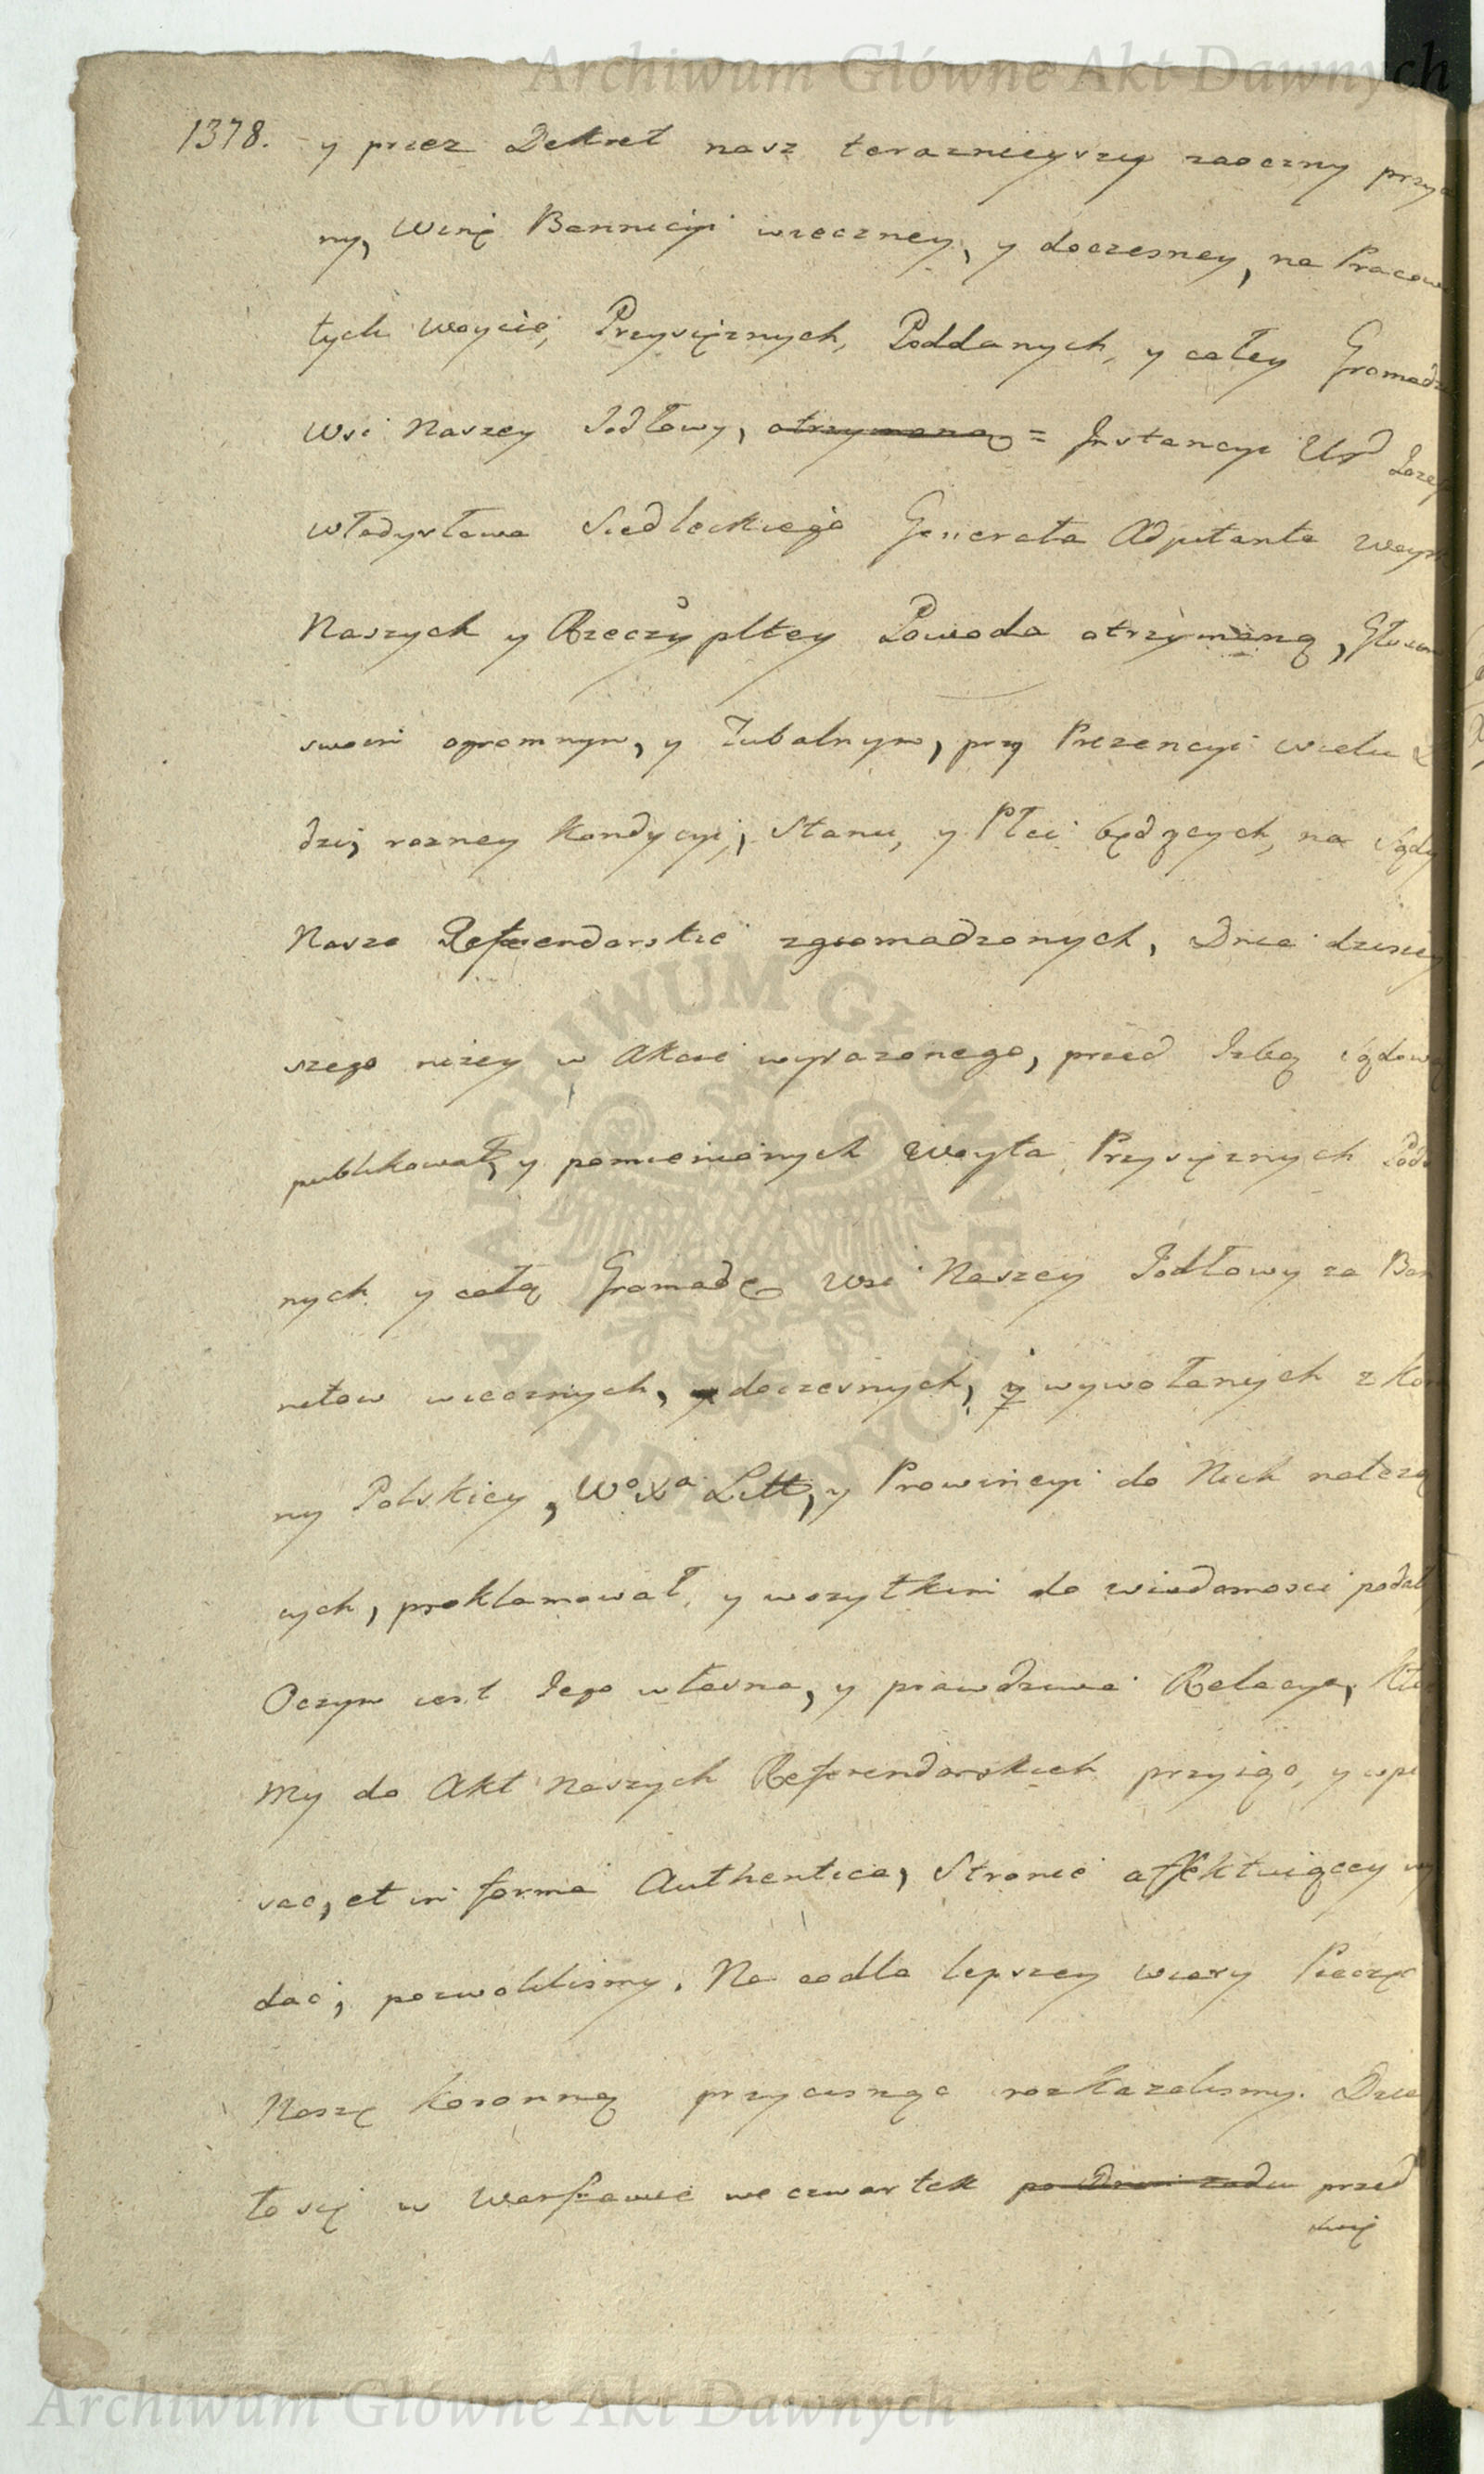 Archiwum Główne Akt Dawnych
1378. y przez Dekret nasz teraznieyszy zaoczny przy
ny, Winę Bannicyi wieczney, y doczesney, na Pracow
tych Woycie, Przysięznych, Poddanych, y całey Gromadz
Wsi Naszey Jodłowy, otrzymaną = Instancyi Ur Joze
Władysława Siedleckiego Generała Adjutanta Woysk
Naszych y Rzeczypltey Powoda otrzymaną, Głosem
swoim ogromnym, y Tubalnym, przy Prezencyi wielu L
dzi, rozney Kondycyi, Stanu, y Płci będących, na Sądy
Nasze Referendarskie zgromadzonych, Dnia dzisiey
szego nizey w Akcie wyrazonego, przed Izbą sądową
publikował, y pomienionych Woyta, Przysięznych Podd
nych y całą Gromadę Wsi Naszey Jodłowy za Ban
nitow wiecznych, y doczesnych, y wywołanych z Koro
ny Polskiey, Wo Xa Litt, y Prowincyi do Nich należą
cych, proklamował, y wszytkim do wiadomosci podał,
Oczym iest Jego własna, y prawdziwa Relacya, Któr
My do Akt Naszych Referendarskich przyiąć, y wpi
sac, et in forma Authentica, Stronie affektuiącey wy
dac, pozwoliliśmy. Na codla lepszey wiary Pieczęc
Naszę Koronną przycisnąc rozkazalismy. Dzia
ło się w Warszawie we czwartek po Dniu zadu przed
Archiwum Główne Akt Dawnych